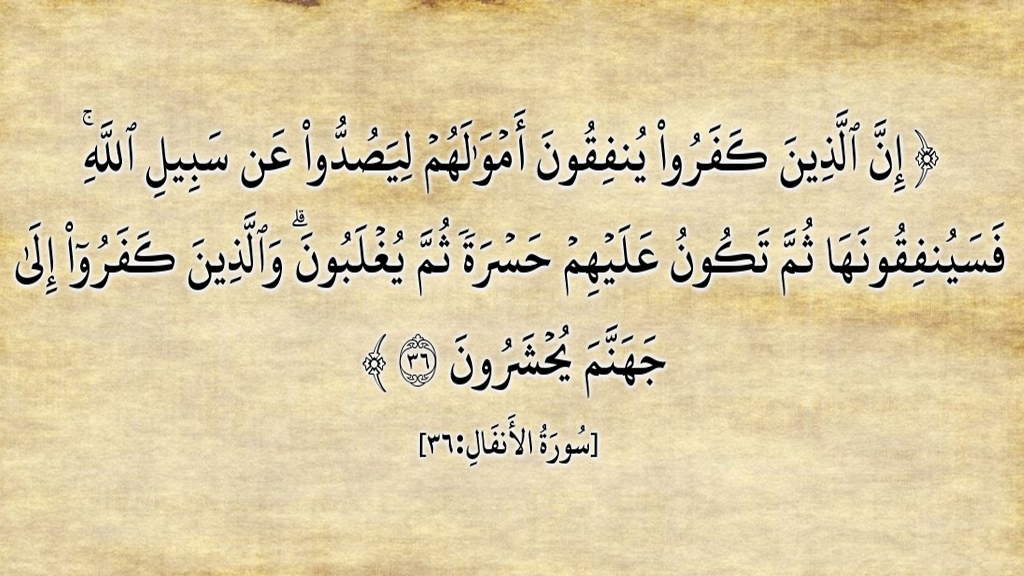 ﴿ إِنَّ ٱلَّذِينَ كَفَرُوا۟ يُنفِقُونَ أَمْوَٰلَهُمْ لِيَصُدُّوا۟ عَن سَبِيلِ ٱللَّهِ ۚ
فَسَيُنفِقُونَهَا ثُمَّ تَكُونُ عَلَيْهِمْ حَسْرَةً ثُمَّ يُغْلَبُونَ ۗ وَٱلَّذِينَ كَفَرُوٓا۟ إِلَىٰ
جَهَنَّمَ يُحْشَرُونَ ٣٦ ﴾
[سُورَةُ الأَنفَالِ:٣٦]